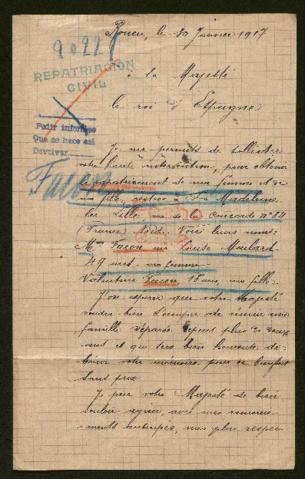 Rouen, le 30 Janvier 1917
90221
REPATRIACIÓN
CIVIL
à la Majesté
le roi d'Espagne
Pedir informes
Que se hace así
Devolver
Facon
Je me permets de solliciter
votre haute intervention, pour obtenir
le rapatriement de ma femme et de
ma fille, restées à La Madeleine
lez Lille, rue de la Concorde nº 84
(France) Nord. Voici leurs noms
Mme Facon née Louise Moulard
49 ans, ma femme
Valentine Facon 18 ans, ma fille
J'ose espérer que votre Majesté
voudra bien s'occuper de réunir une
famille séparée depuis plus de
et qui sera bien heureuse de
bénir votre mémoire pour ce bienfait
sans prix
Je prie votre Majesté de bien
vouloir agréer, avec mes remercie-
ments anticipés, mes plus respec-